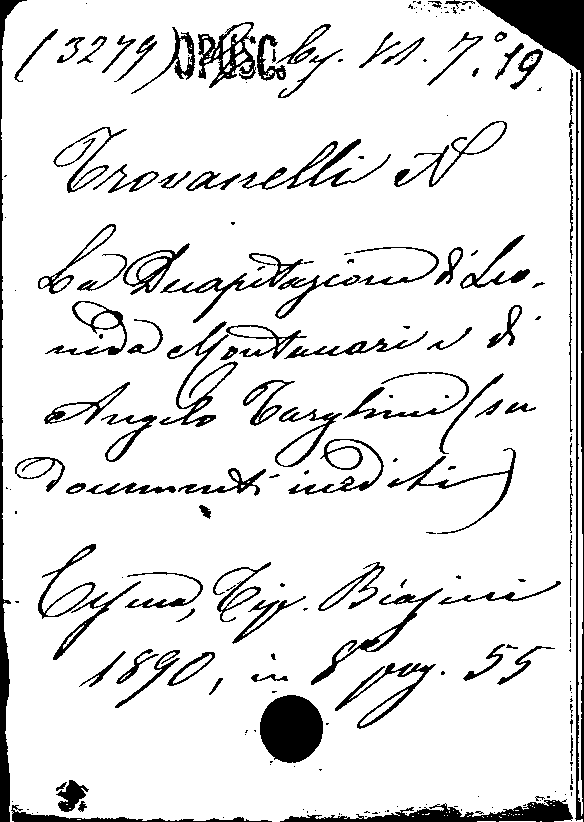 (3279) OPUSC. Vol. 7.° 19.
Trovanelli N
La Decapitazione di Leo-
nida Montanari e di
Angelo Targhini (su
documenti inediti)
Cesena, Tip. Biasini
1890, in 8° pag. 55